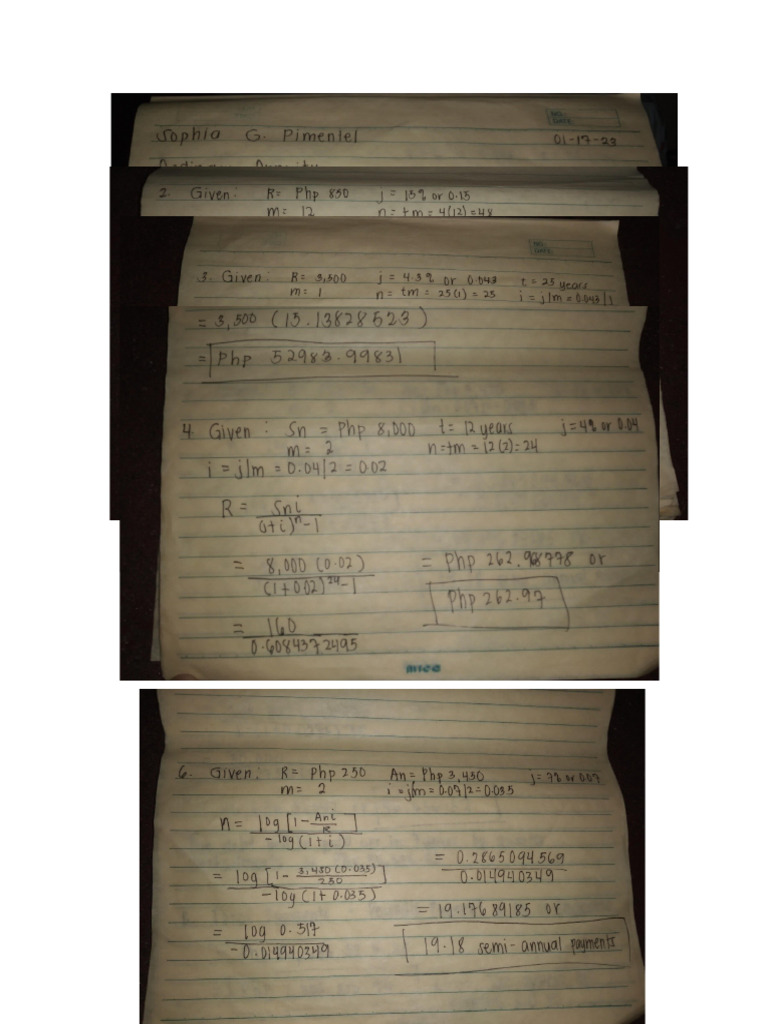 NO.
DATE
Sophia G. Pimentel 01-17-23
2. Given: R= Php 850 j = 15% or 0.15
m= 12 n= tm = 4(12)=48
NO.
DATE
3. Given: R= 3,500 j = 4.3% or 0.043 t = 25 years
m= 1 n= tm = 25(1) = 25 i = j/m = 0.043/1
= 3,500 (15.13828523)
= Php 52983.99831
4. Given: Sn = Php 8,000 t= 12 years j=4% or 0.04
m= 2 n=tm = 12(2)=24
i = j/m = 0.04/2 = 0.02
R = Sni
(1+i)^n - 1
= 8,000 (0.02) = Php 262.968778 or
(1+0.02)^24 - 1 Php 262.97
= 160
0.6084372495
6. Given: R= Php 250 An= Php 3,450 j= 7% or 0.07
m= 2 i =j/m= 0.07/2= 0.035
n = log [1- Ani/R]
-log (1+i)
= log [1- 3,450(0.035)/250] = 0.2865094569
-log (1+ 0.035) 0.014940349
= 19.17689185 or
= log 0.517
-0.014940349 19.18 semi-annual payments